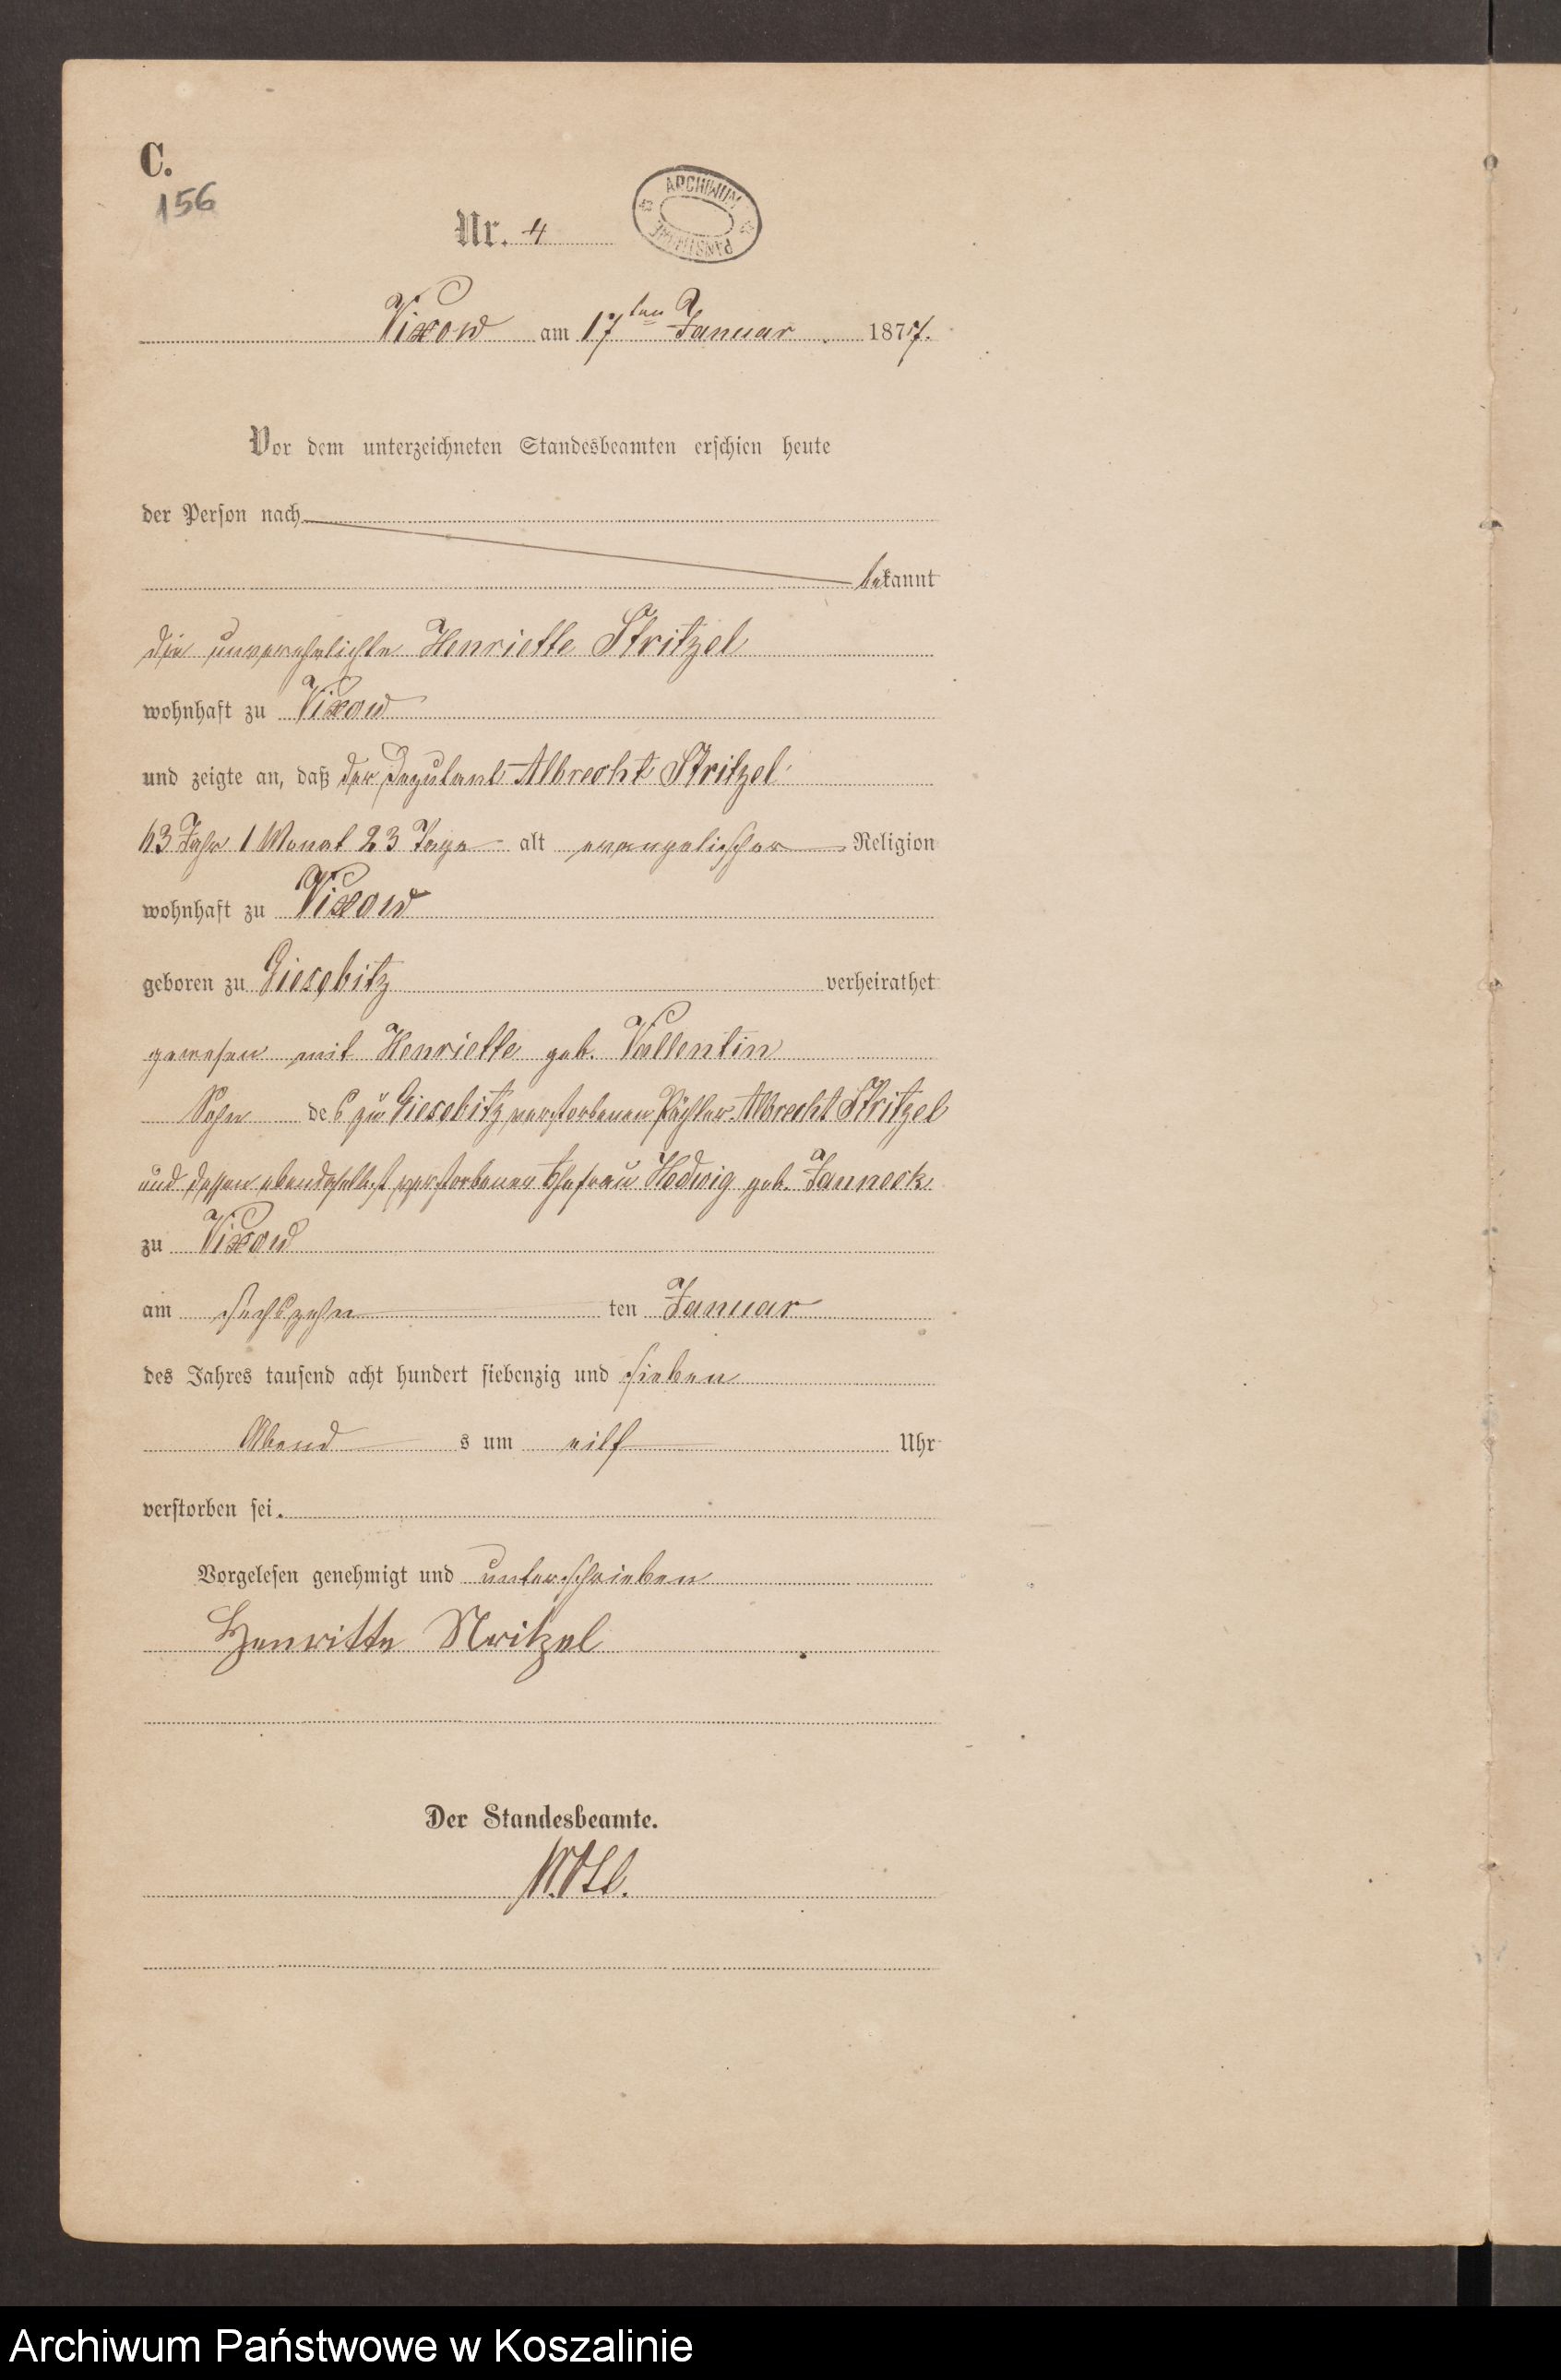 C.
156
Nr. 4
ARCHIWUM
PAŃSTWOWE
Vixow am 17ten Januar 1877.
Vor dem unterzeichneten Standesbeamten erschien heute
der Person nach
bekannt
die unverehelichte Henriette Stritzel
wohnhaft zu Vixow
und zeigte an, daß der Deputant Albrecht Stritzel
63 Jahr 1 Monat 23 Tage alt evangelischer Religion
wohnhaft zu Vixow
geboren zu Giesebitz verheirathet
gewesen mit Henriette geb. Vallentin
Sohn des zu Giesebitz verstorbenen Pächter Albrecht Stritzel
und dessen ebendaselbst verstorbenen Ehefrau Hedwig geb. Janneck
zu Vixow
am sechszehn ten Januar
des Jahres tausend acht hundert siebenzig und sieben
Abend s um eilf Uhr
verstorben sei.
Vorgelesen genehmigt und unterschrieben
Henritte Stritzel
Der Standesbeamte.
Archiwum Państwowe w Koszalinie